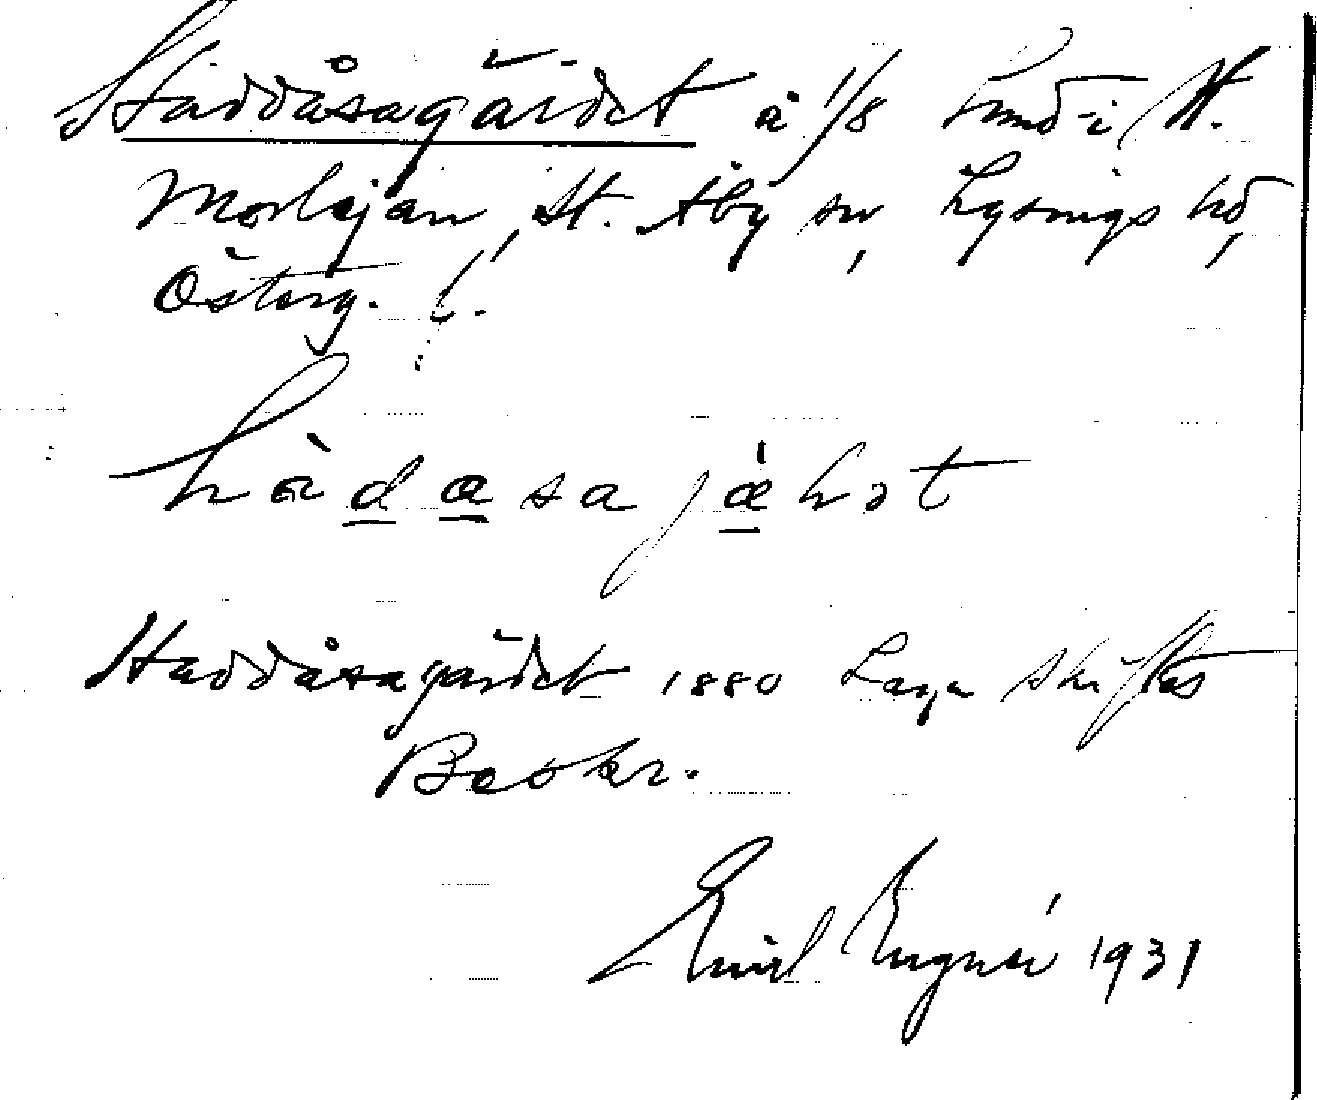 Haddåsagärdet å 1/8 Lund i St.
Morlejan, St. Åby sn, Lysings hd,
Österg. l.
hàdasajæhət
Haddåsagärdet 1880 Laga skiftes
Beskr.
Emil Engnér 1931